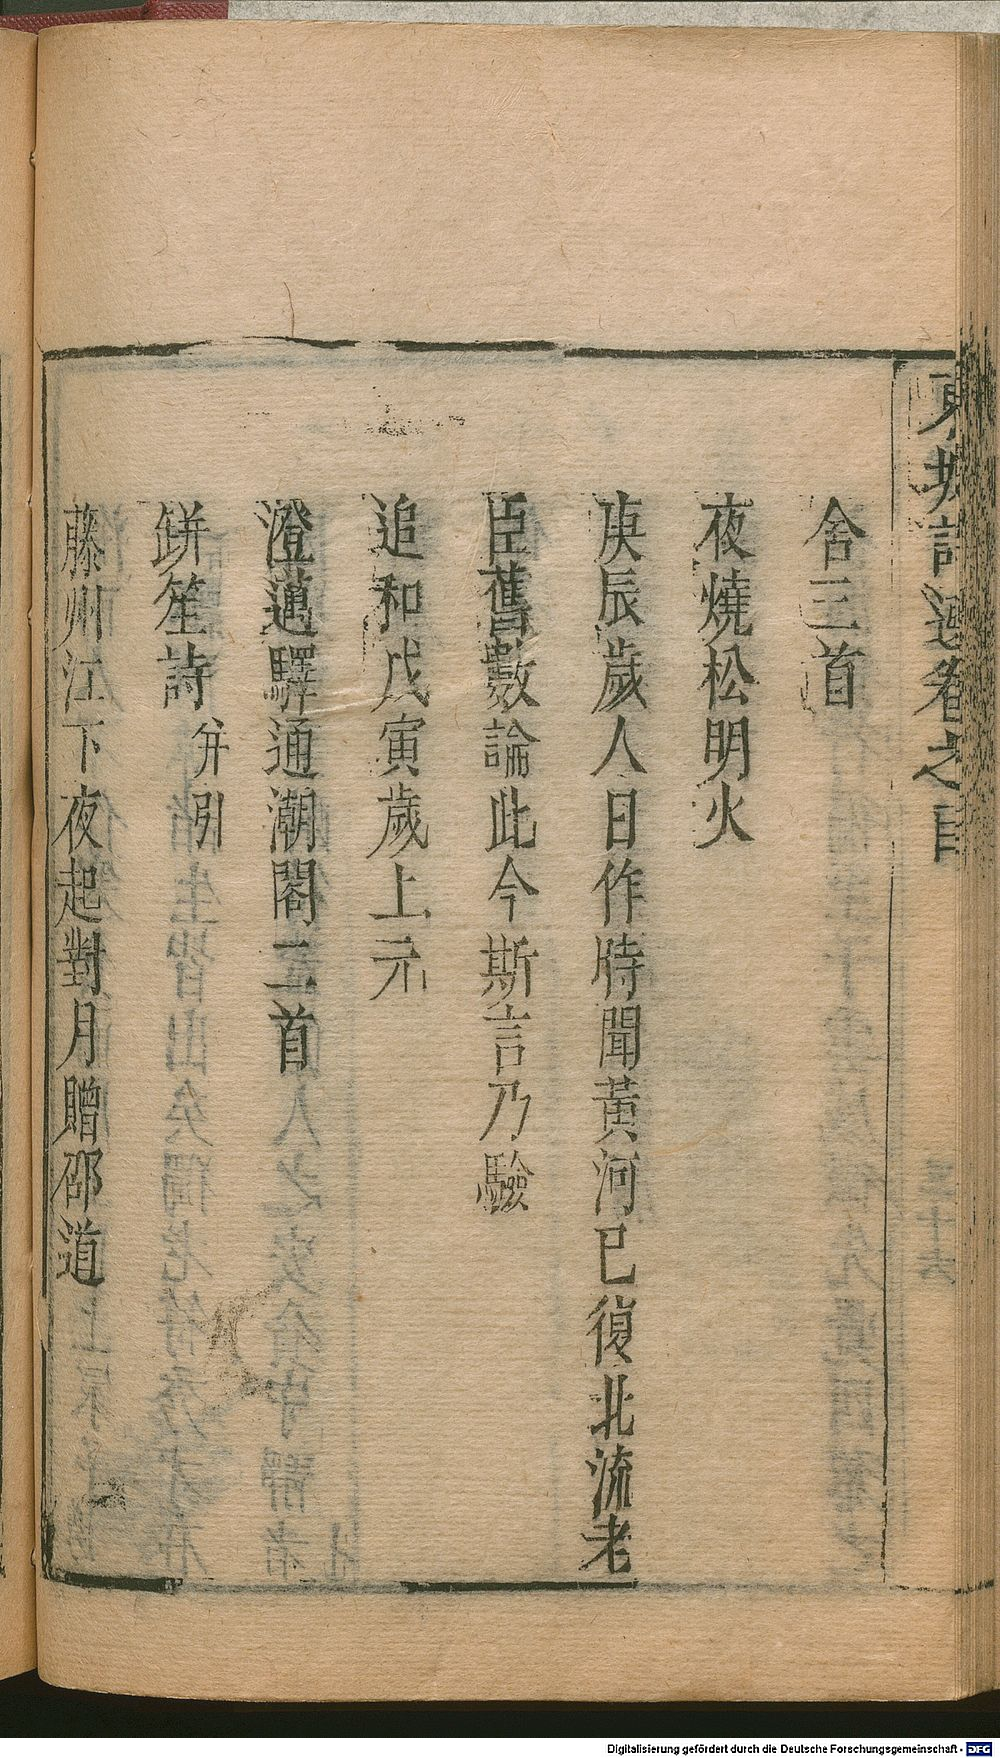 東坡詩選卷之目
舍三首
夜燒松明火
庚辰歲人日作時聞黃河已復北流老
臣舊數論此今斯言乃驗
追和戊寅歲上元
澄邁驛通潮閣二首
缾笙詩 并引
藤州江下夜起對月贈邵道
Digitalisierung gefördert durch die Deutsche Forschungsgemeinschaft - DFG